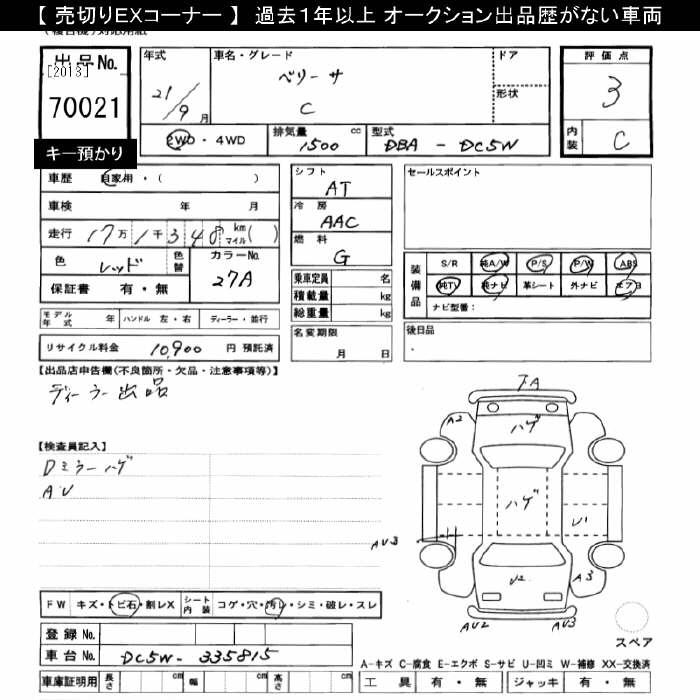 【 売切りEXコーナー 】 過去1年以上 オークション出品歴がない車両
出品No.
[2013]
70021
キー預かり
年式
21/9 月
車名・グレード
ベリーサ
C
ドア
形状
評価点
3
内装 C
2WD・4WD
排気量 1500 cc
型式 DBA - DC5W
車歴 自家用・( )
車検 年 月
走行 17万1千348 km マイル( )
色 レッド 色替
カラーNo. 27A
保証書 有・無
シフト
AT
冷房
AAC
燃料
G
乗車定員 名
積載量 kg
総重量 kg
セールスポイント
装備品
S/R 純A/W P/S P/W ABS
純TV 純ナビ 革シート 外ナビ エアB
ナビ型番:
モデル年式 年 ハンドル 左・右 ディーラー・並行
名変期限
月 日
後日品
リサイクル料金 10,900 円 預託済
【出品店申告欄(不良箇所・欠品・注意事項等)】
ディーラー出品
【検査員記入】
Dミラーハゲ
AU
FA
A2
ハゲ
ハゲ
U1
AU3
U2
A3
AU2
AU3
スペア
FW キズ・トビ石・割レX シート内装 コゲ・穴・汚レ・シミ・破レ・スレ
登録No.
車台No. DC5W-335815
A-キズ C-腐食 E-エクボ S-サビ U-凹ミ W-補修 XX-交換済
車庫証明用 長さ cm 幅 cm 高さ cm
工具 有・無 ジャッキ 有・無